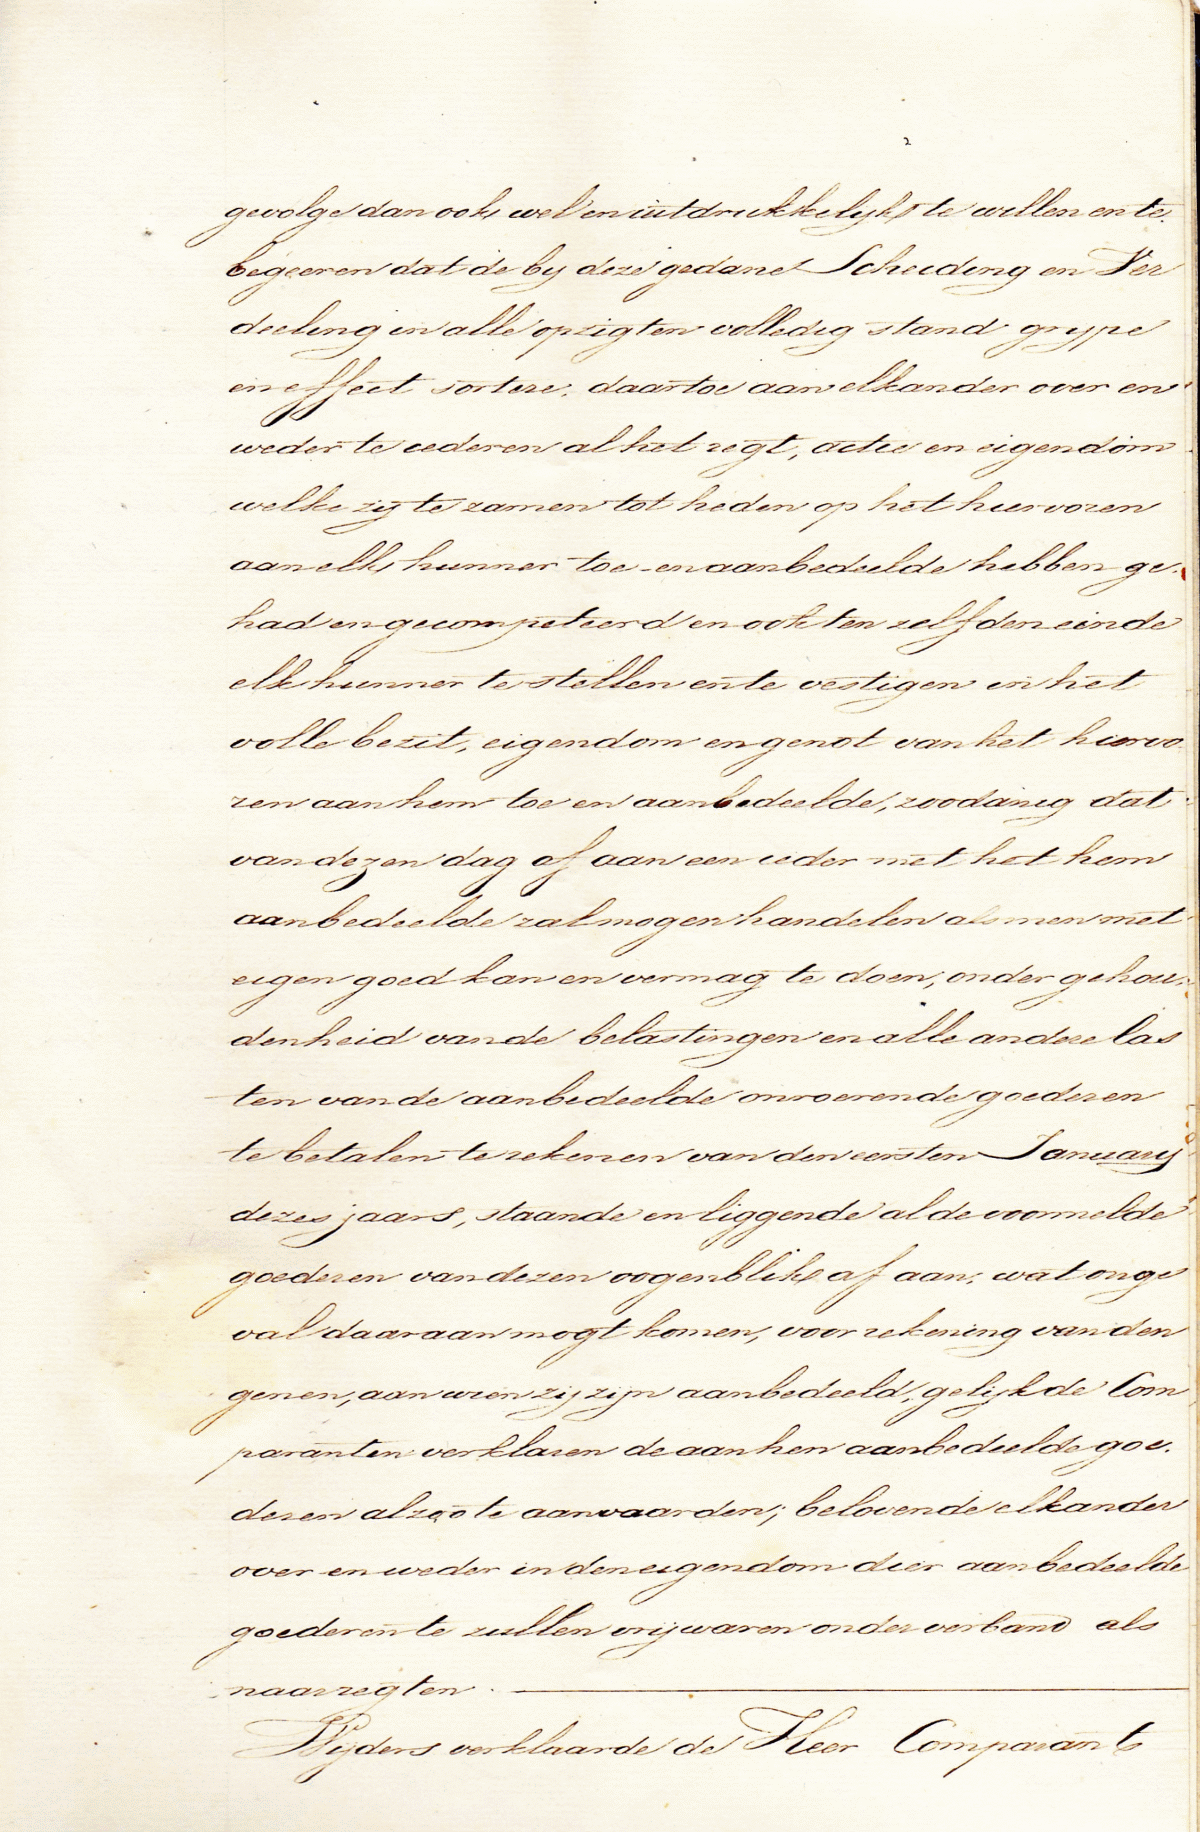 gevolge dan ook wel en uitdrukkelijk te willen en te
begeeren dat de by deze gedane Scheiding en Ver
deeling in alle opzigten volledig stand grype
en effect sortere, daartoe aan elkander over en
weder te cederen al het regt, actie en eigendom
welke zij te zamen tot heden op het hiervoren
aan elk hunner toe- en aanbedeelde hebben ge-
had en gecompeteerd en ook ten zelfden einde
elk hunner te stellen en te vestigen in het
volle bezit, eigendom en genot van het hiervo
ren aan hem toe en aanbedeelde, zoodanig dat
van dezen dag af aan een ieder met het hem
aanbedeelde zal mogen handelen als men met
eigen goed kan en vermag te doen, onder gehou-
denheid van de belastingen en alle andere las
ten van de aanbedeelde onroerende goederen
te betalen te rekenen van den eersten January
dezes jaars, staande en liggende al de voormelde
goederen van dezen oogenblik af aan, wat onge
val daaraan mogt komen, voor rekening van den
genen, aan wien zij zijn aanbedeeld, gelijk de Com
paranten verklaren de aan hen aanbedeelde goe-
deren alzoo te aanvaarden; belovende elkander
over en weder in den eigendom dier aanbedeelde
goederen te zullen vrijwaren onder verband als
naar regten.
Wijders verklaarde de Heer Comparant